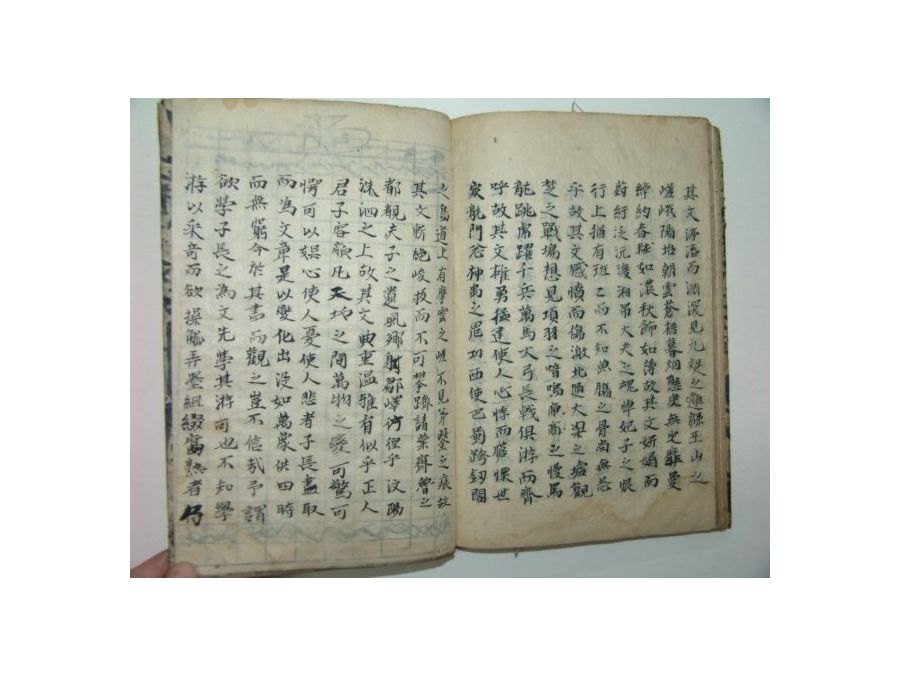 其文渟滀而淵深見九疑之邈緜巫山之
嵯峨陽坮朝雲蒼梧暮烟態度無定靡曼
綽約春粧如濃秋飾如薄故其文姸媚而
蔚紆泛沅渡湘吊大夫之魂悼妃子之恨
竹上猶有班班而不知魚膓之骨尙無恙
乎故其文感憤而傷激北過大梁之墟觀
楚之戰場想見項羽之喑嗚高帝之慢罵
龍跳虎躍千兵萬馬大弓長戟俱游而齊
呼故其文雄勇猛健使人心悸而膽慄世
家龍門念神禹之鬼功西使巴蜀跨釰閣
之鳥道上有摩雲之崖不見斧鑿之痕故
其文斬絶峻拔而不可攀躋講業齊魯之
都覩夫子之遺風鄕射鄒嶧彷徨乎汶陽
洙泗之上故其文典重溫雅有似乎正人
君子容貌凡天地之間萬物之變可驚可
愕可以娛心使人憂使人悲者子長盡取
而爲文章是以變化出没如萬象供四時
而無窮今於其書而觀之豈不信哉予謂
欲學子長之為文先學其游可也不知學
游以采奇而欲操觚弄墨組綴腐熟者乃